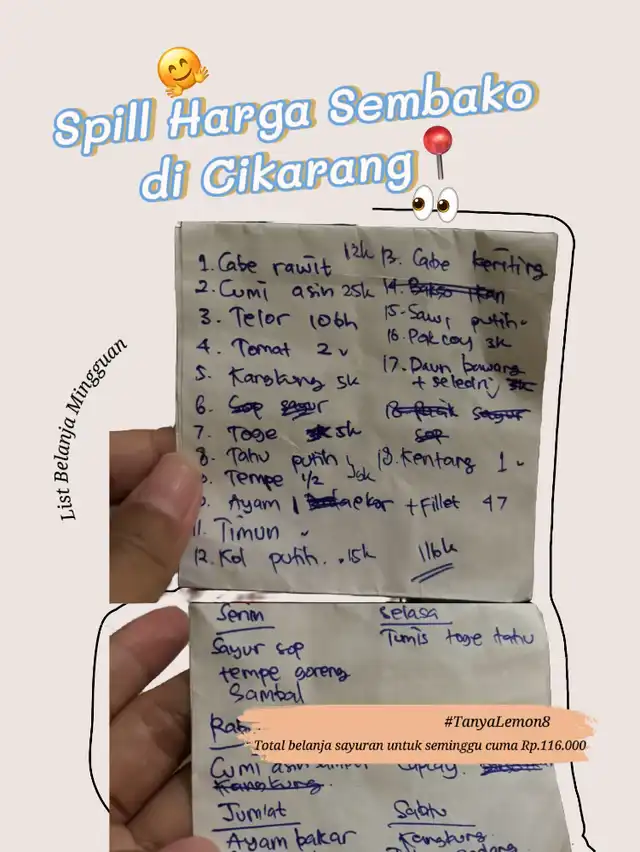 Spill Harga Sembako
di Cikarang
List Belanja Mingguan
1. Cabe rawit 12k
2. Cumi asin 25k
3. Telor 10 bh
4. Tomat 2
5. Kangkung 5k
6. Sop sayur
7. Toge 5k
8. Tahu putih
Tempe 1/2
Ayam 1 ekor + Fillet 47
11. Timun
12. Kol putih 15k
13. Cabe keriting
14. Bakso ikan
15. Sawi putih
16. Pakcoy 3k
17. Daun bawang
+ seledri
sayur
sop
18. Kentang 1
116k
Senin
Sayur sop
tempe goreng
Sambal
Selasa
Tumis toge tahu
#TanyaLemon8
Total belanja sayuran untuk seminggu cuma Rp.116.000
Cumi asin
Kangkung
Jum'at
Ayam bakar
Sabtu
Kangkung